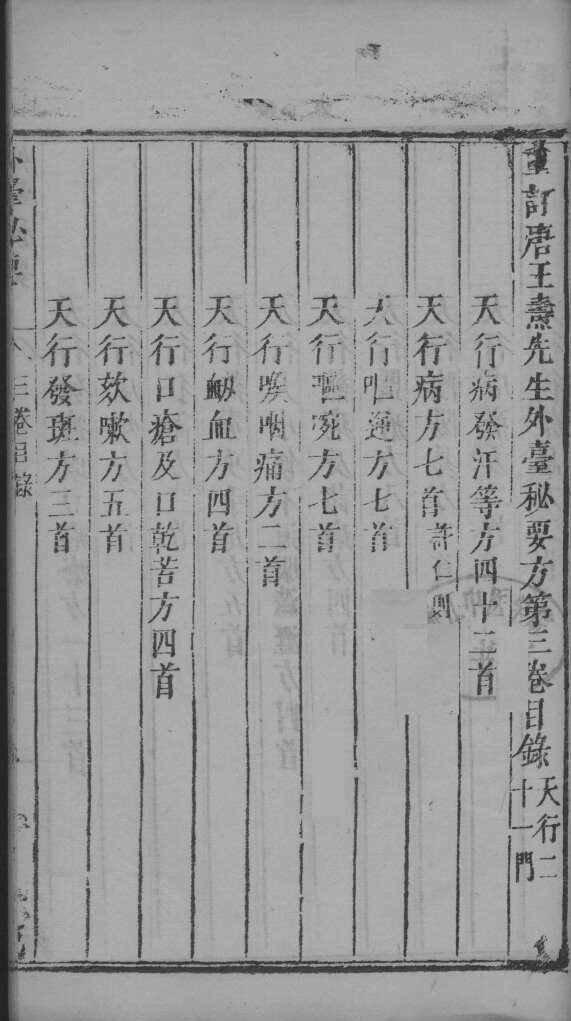 重訂唐王燾先生外臺秘要方第三卷目錄天行二十一門
天行病發汗等方四十二首
天行病方七首許仁則
天行嘔逆方七首
天行嘔啘方七首
天行喉咽痛方二首
天行衂血方四首
天行口瘡及口乾苦方四首
天行欬嗽方五首
天行發斑方三首
外臺秘要
三卷目錄